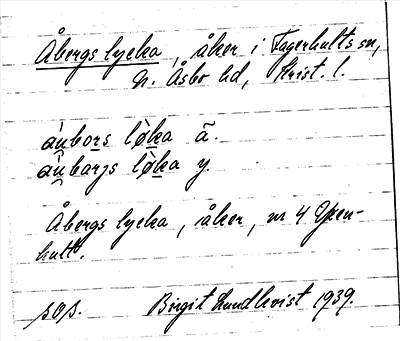 Åbergs lycka, åker i Fagerhults sn,
N. Åsbo hd, Krist. l.
àu̯bors lø̀ka ã.
àu̯barjs lø̀ka y.
Åbergs lycka, åker, nr 4 Ypen-
hult.
sos. Birgit Lundkvist 1939.